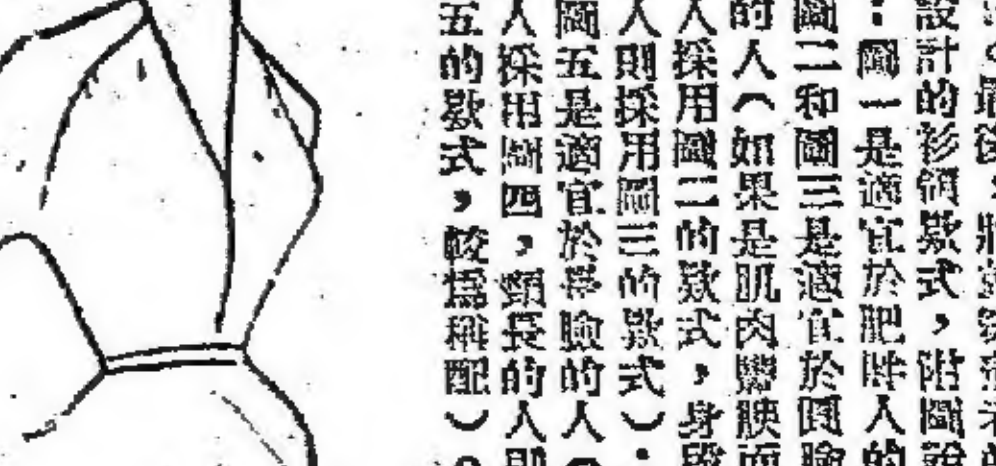 最後，將
設計的衫領欵式，附圖說
：圖一是適宜於肥胖人的
圖二和圖三是適宜於圓臉
的人（如果是肌肉
人採用圖二的欵式，身段
人則採用圖三的欵式）：
圖五是適宜於長臉的人（
人採用圖四，頸長的人則
五的欵式，較爲稱配）。